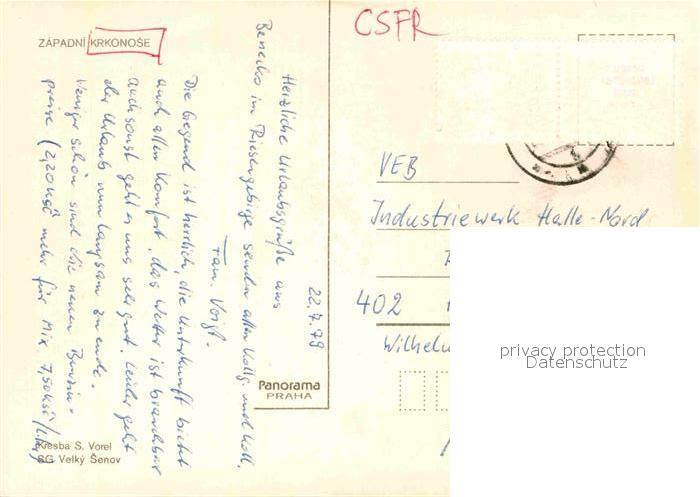 CSFR
ZÁPADNÍ KRKONOŠE
22.7.79
Herzliche Urlaubsgrüße aus
Benecko im Riesengebirge senden allen Kollg. und Koll.
Fam. Voigt.
Die Gegend ist herrlich, die Unterkunft bietet
auch allen Komfort, das Wetter ist brauchbar
auch sonst geht es uns sehr gut. Leider geht
der Urlaub nun langsam zu ende.
Weniger schön sind die neuen Benzin-
preise (2,20 Kčs mehr für Mix 7,50 Kčs
VEB
Industriewerk Halle-Nord
402
Wilhelm
Panorama
PRAHA
Kresba S. Vorel
SG Velký Šenov
privacy protection
Datenschutz